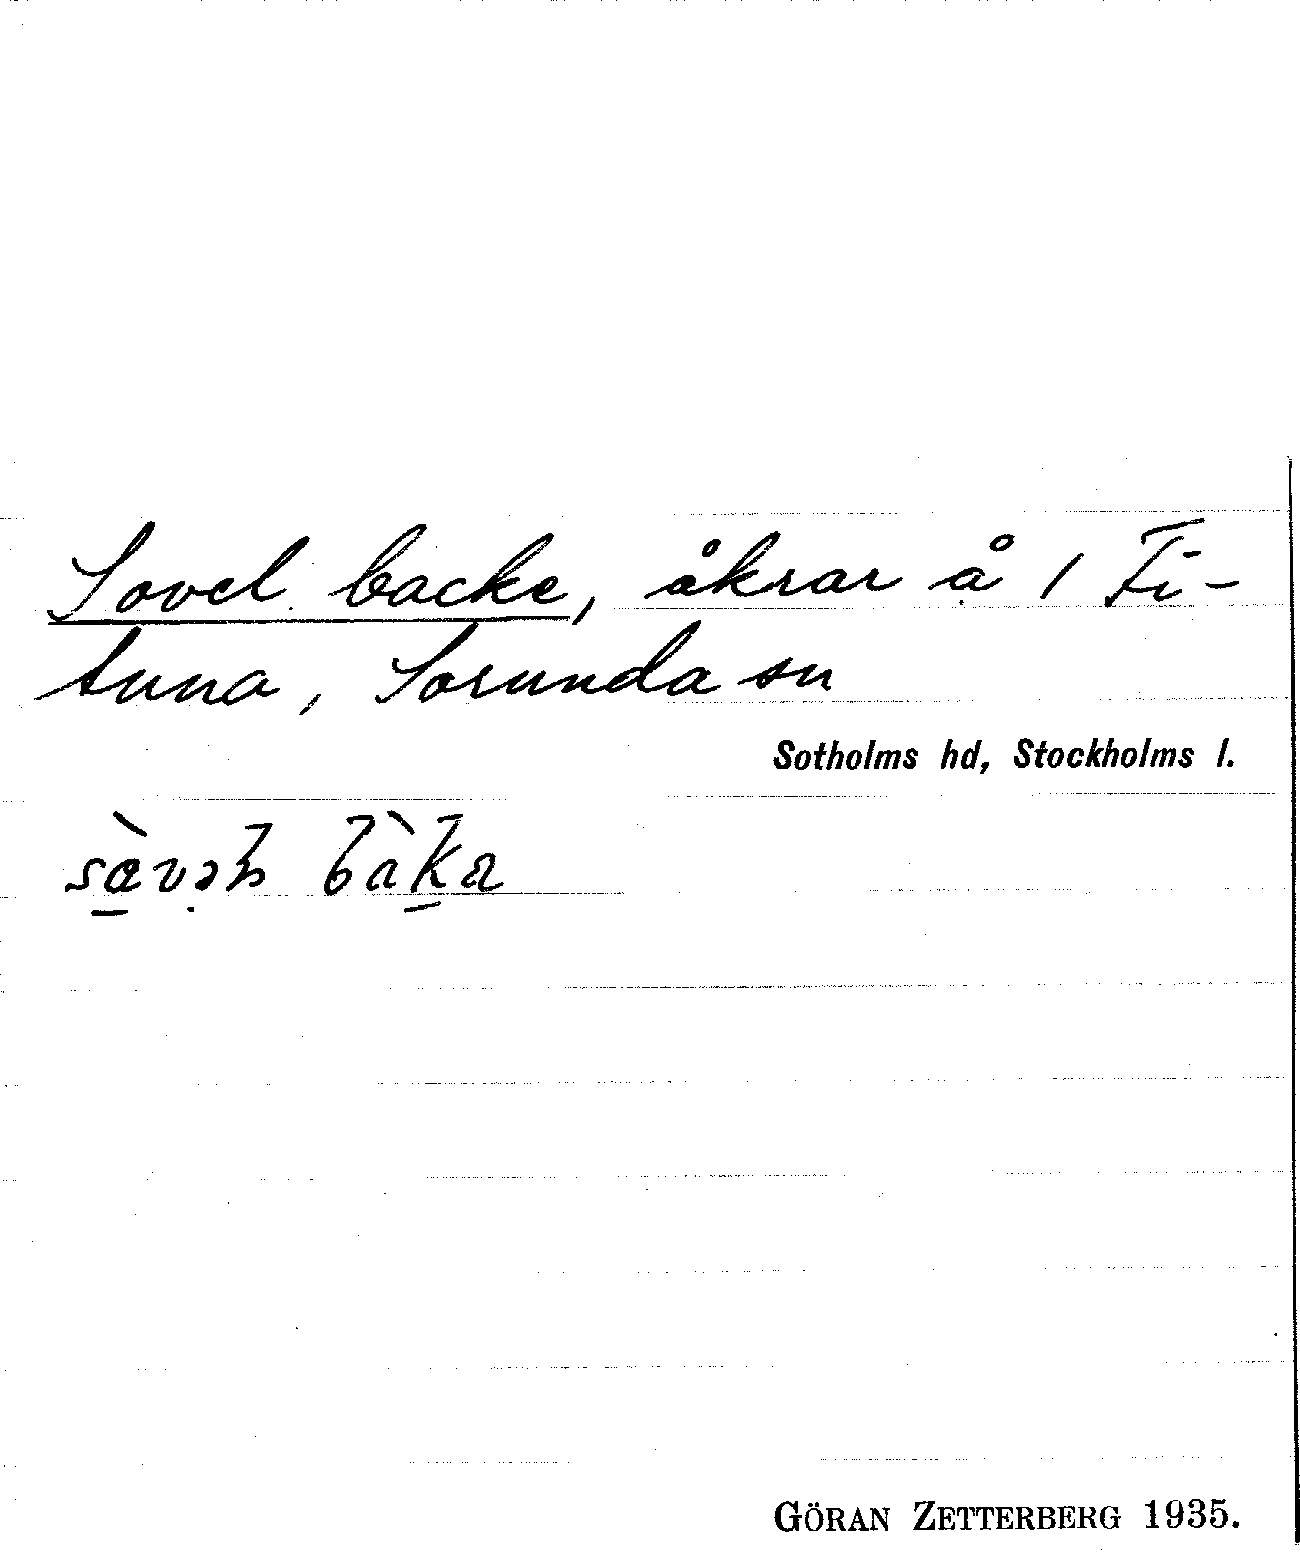 Sovel backe, åkrar å 1 Fi-
tuna, Sorunda sn
Sotholms hd, Stockholms l.
GÖRAN ZETTERBERG 1935.